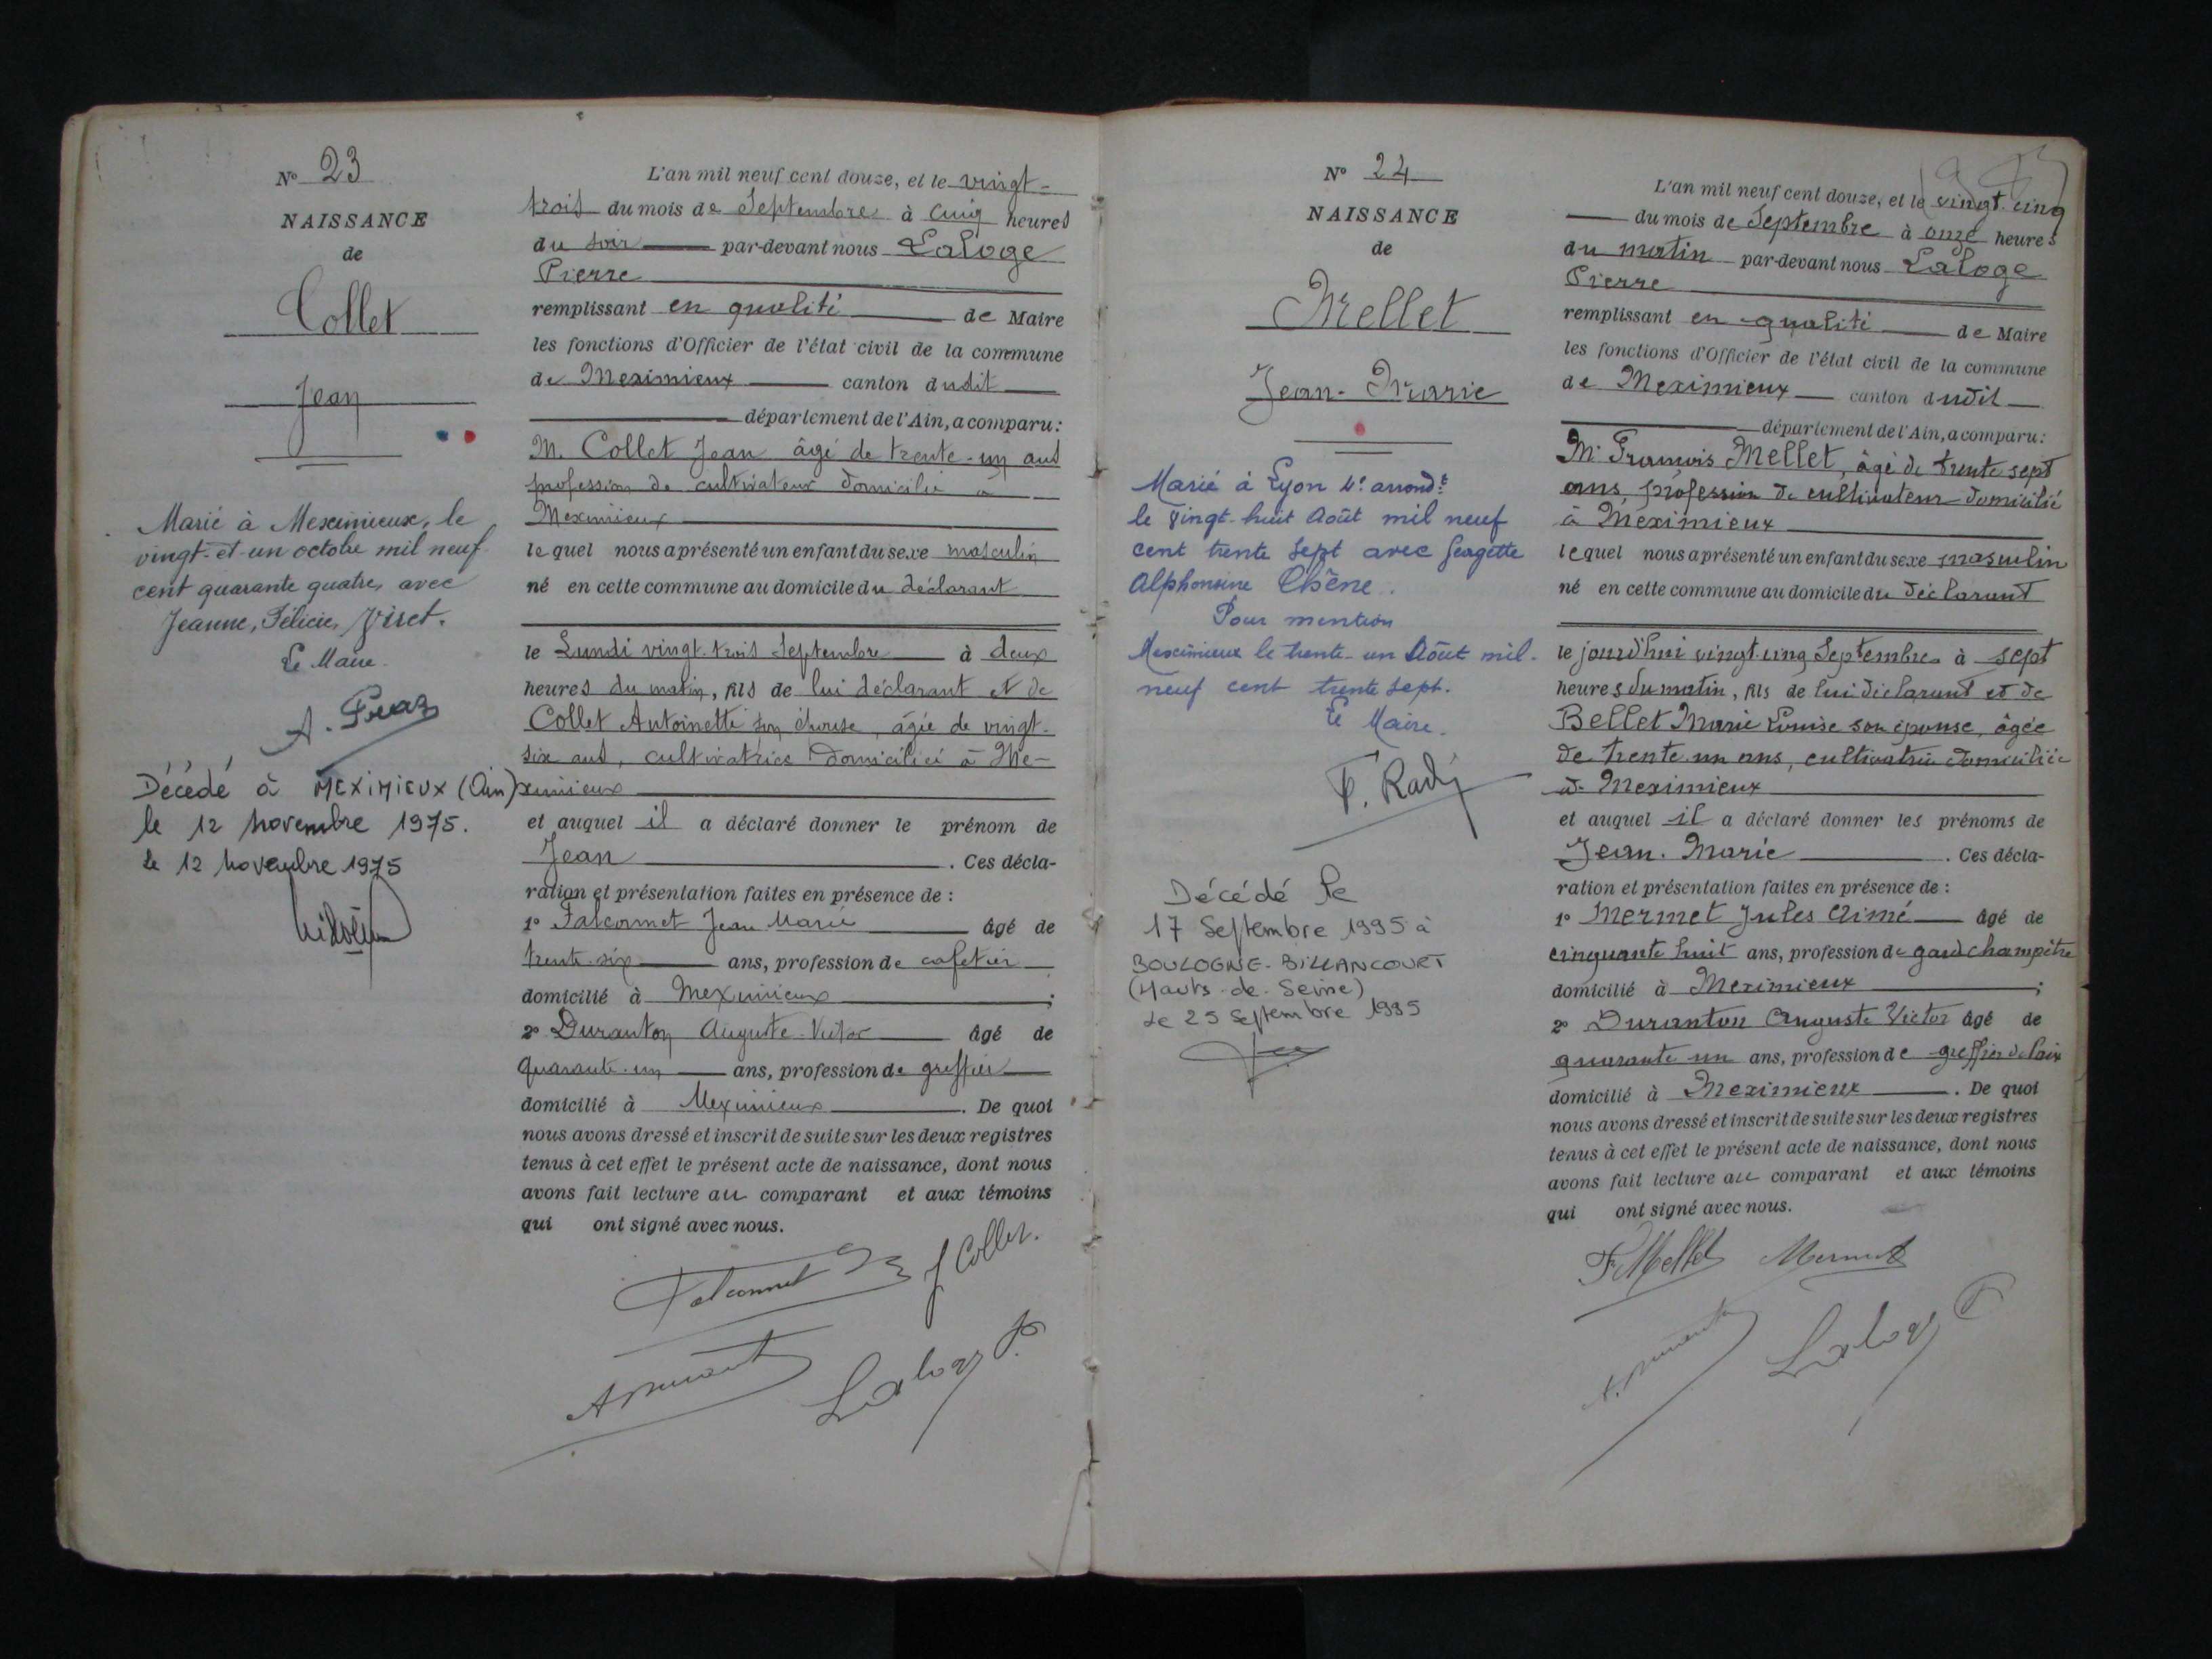 N° 23
NAISSANCE
de
Collet
Jean
Marié à Meximieux, le
vingt-et-un octobre mil neuf
cent quarante quatre, avec
Jeanne, Félicie,
Le Maire
Décédé à MEXIMIEUX (Ain)
le 12 novembre 1975.
le 12 novembre 1975
L'an mil neuf cent douze, et le vingt-
trois du mois de Septembre à cinq heures
du soir par-devant nous Laloge
Pierre
remplissant en qualité de Maire
les fonctions d'Officier de l'état civil de la commune
de Meximieux canton dudit
département de l'Ain, a comparu:
M. Collet Jean âgé de trente-un ans
profession de cultivateur domicilié à
Meximieux
lequel nous a présenté un enfant du sexe masculin
né en cette commune au domicile du déclarant
le Lundi vingt-trois Septembre à deux
heures du matin, fils de lui déclarant et de
Collet Antoinette son épouse, âgée de vingt-
six ans, cultivatrice domiciliée à Me-
ximieux
et auquel il a déclaré donner le prénom de
Jean . Ces décla-
ration et présentation faites en présence de :
1° Falconnet Jean Marie âgé de
trente-six ans, profession de cafetier
domicilié à Meximieux ;
2° Duranton Auguste Victor âgé de
quarante-un ans, profession de greffier
domicilié à Meximieux . De quoi
nous avons dressé et inscrit de suite sur les deux registres
tenus à cet effet le présent acte de naissance, dont nous
avons fait lecture au comparant et aux témoins
qui ont signé avec nous.
Falconnet J Collet.
Laloge P.
N° 24
NAISSANCE
de
Mellet
Jean-Marie
Marié à Lyon 4e arrondt
le vingt-huit Août mil neuf
cent trente sept avec Georgette
Alphonsine Chêne.
Pour mention
Meximieux le trente-un Août mil-
neuf cent trente sept.
Le Maire.
Décédé le
17 Septembre 1995 à
BOULOGNE-BILLANCOURT
(Hauts-de-Seine)
Le 25 Septembre 1995
L'an mil neuf cent douze, et le vingt-cinq
du mois de Septembre à onze heures
du matin par-devant nous Laloge
Pierre
remplissant en qualité de Maire
les fonctions d'Officier de l'état civil de la commune
de Meximieux canton dudit
département de l'Ain, a comparu:
M. François Mellet, âgé de trente sept
ans, profession de cultivateur domicilié
à Meximieux
lequel nous a présenté un enfant du sexe masculin
né en cette commune au domicile du déclarant
le jourd'hui vingt-cinq Septembre à sept
heures du matin, fils de lui déclarant et de
Bellet Marie Louise son épouse, âgée
de trente-un ans, cultivatrice domiciliée
à Meximieux
et auquel il a déclaré donner les prénoms de
Jean-Marie . Ces décla-
ration et présentation faites en présence de :
1° Mermet Jules Aimé âgé de
cinquante huit ans, profession de gardechampêtre
domicilié à Meximieux ;
2° Duranton Auguste Victor âgé de
quarante un ans, profession de greffier de Paix
domicilié à Meximieux . De quoi
nous avons dressé et inscrit de suite sur les deux registres
tenus à cet effet le présent acte de naissance, dont nous
avons fait lecture au comparant et aux témoins
qui ont signé avec nous.
F. Mellet Mermet
Laloge P